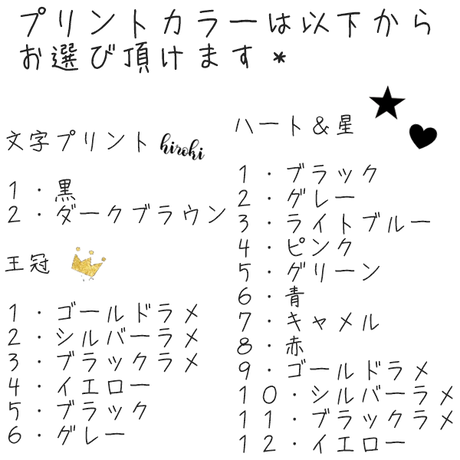 プリントカラーは以下から
お選び頂けます*
文字プリント hiroki
1・黒
2・ダークブラウン
王冠
1・ゴールドラメ
2・シルバーラメ
3・ブラックラメ
4・イエロー
5・ブラック
6・グレー
ハート&星
1・ブラック
2・グレー
3・ライトブルー
4・ピンク
5・グリーン
6・青
7・キャメル
8・赤
9・ゴールドラメ
10・シルバーラメ
11・ブラックラメ
12・イエロー